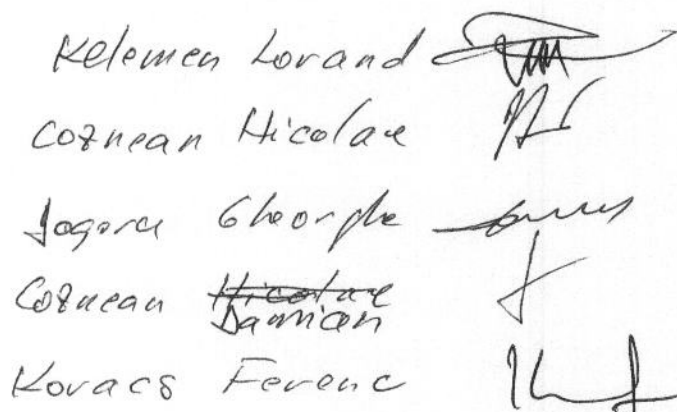 Kelemen Lorand
Coznean Nicolae
Jagoru Gheorghe
Coznean Nicolae
Damian
Kovacs Ferenc